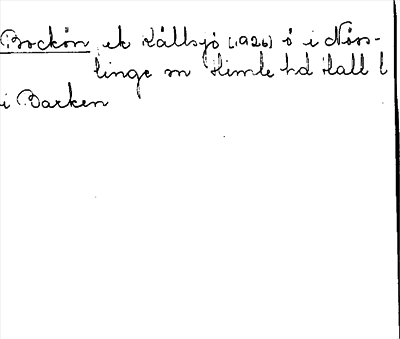 Bockön ek Källsjö (1926) ö i Nöss-
linge sn Himle hd Hall l
i Barken